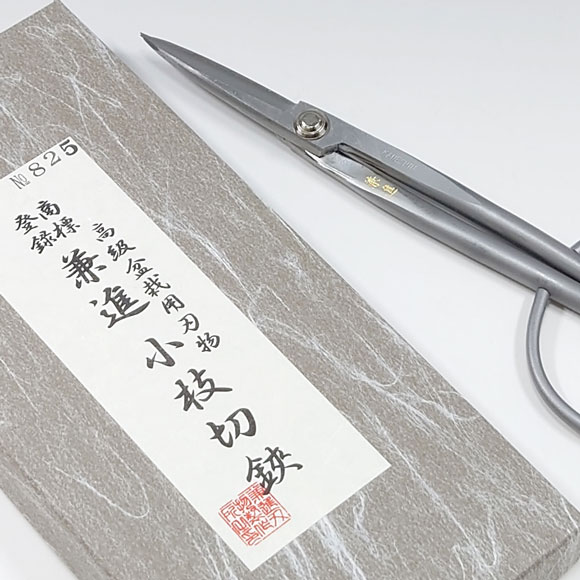 №825
商標
登録
高級盆栽用刃物
兼進 小枝切鋏
兼進